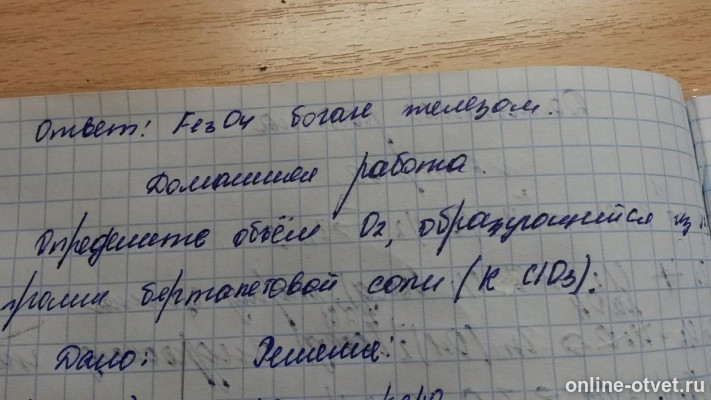 Ответ: Fe3O4 богаче железом.
Домашняя работа
Определите объём O2, образующийся из
грамм бертолетовой соли (K ClO3).
Дано: Решение:
online-otvet.ru